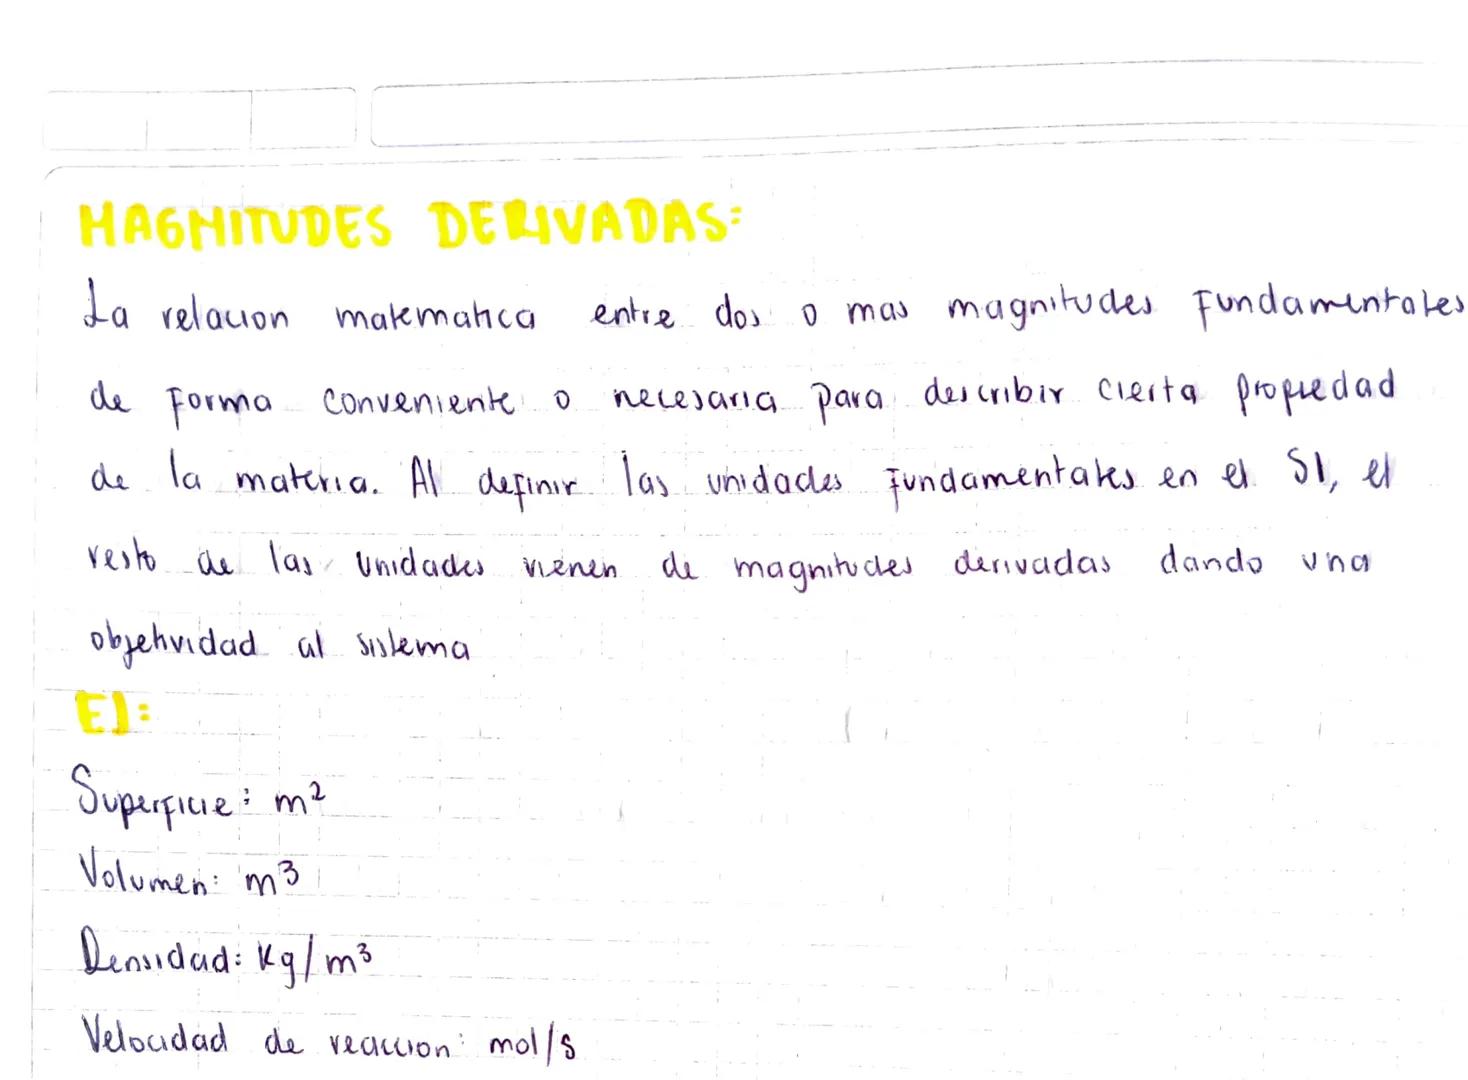 MAGNITUDES DERIVADAS:
La relacion matematica entre dos o mas magnitudes Fundamentales
de Forma conveniente o necesaria para describir cierta propiedad
de la materia. Al definir las unidades Fundamentales en el SI, el
resto de las unidades vienen de magnitudes derivadas dando una
objetividad al sistema
EJ:
Superficie: m²
Volumen: m³
Densidad: Kg/m³
Velocidad de reaccion: mol/s